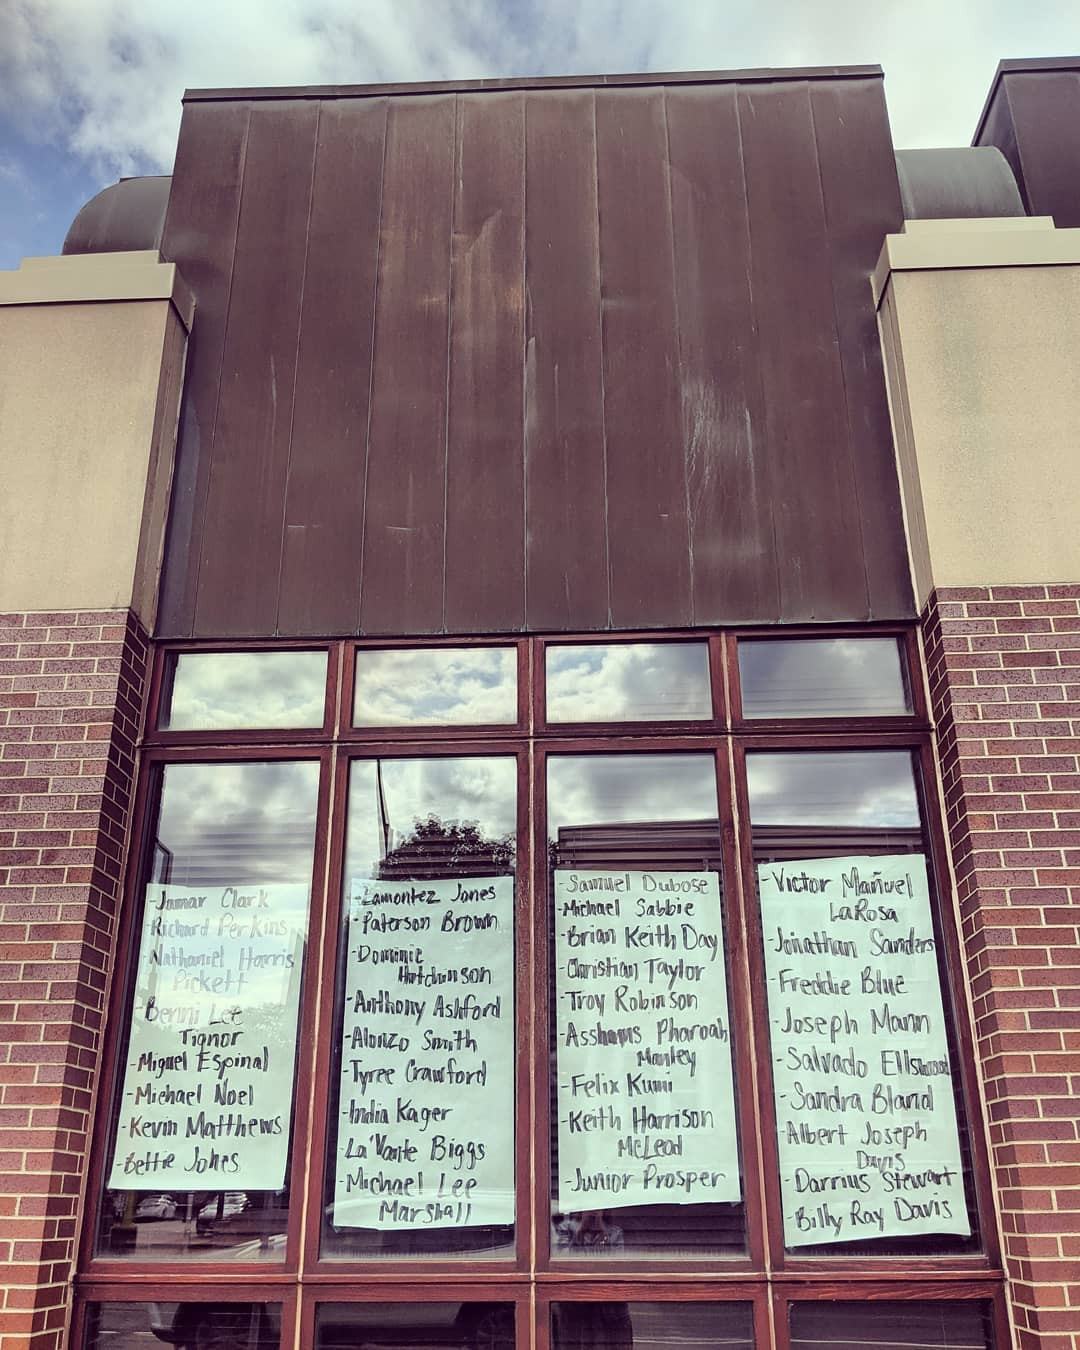 -Jamar Clark
-Richard Perkins
-Nathaniel Harris
Pickett
-Benni Lee
Tignor
-Miguel Espinal
-Michael Noel
-Kevin Matthews
-Bettie Jones
-Lamontez Jones
-Paterson Brown
-Dominic
Hutchinson
-Anthony Ashford
-Alonzo Smith
-Tyree Crawford
-India Kager
-La'Vante Biggs
-Michael Lee
Marshall
-Samuel Dubose
-Michael Sabbie
-Brian Keith Day
-Christian Taylor
-Troy Robinson
-Asshams Pharoah
Manley
-Felix Kumi
-Keith Harrison
McLeod
-Junior Prosper
-Victor Mañuel
LaRosa
-Jonathan Sanders
-Freddie Blue
-Joseph Mann
-Salvado Ellswood
-Sandra Bland
-Albert Joseph
Davis
-Darrius Stewart
-Billy Ray Davis